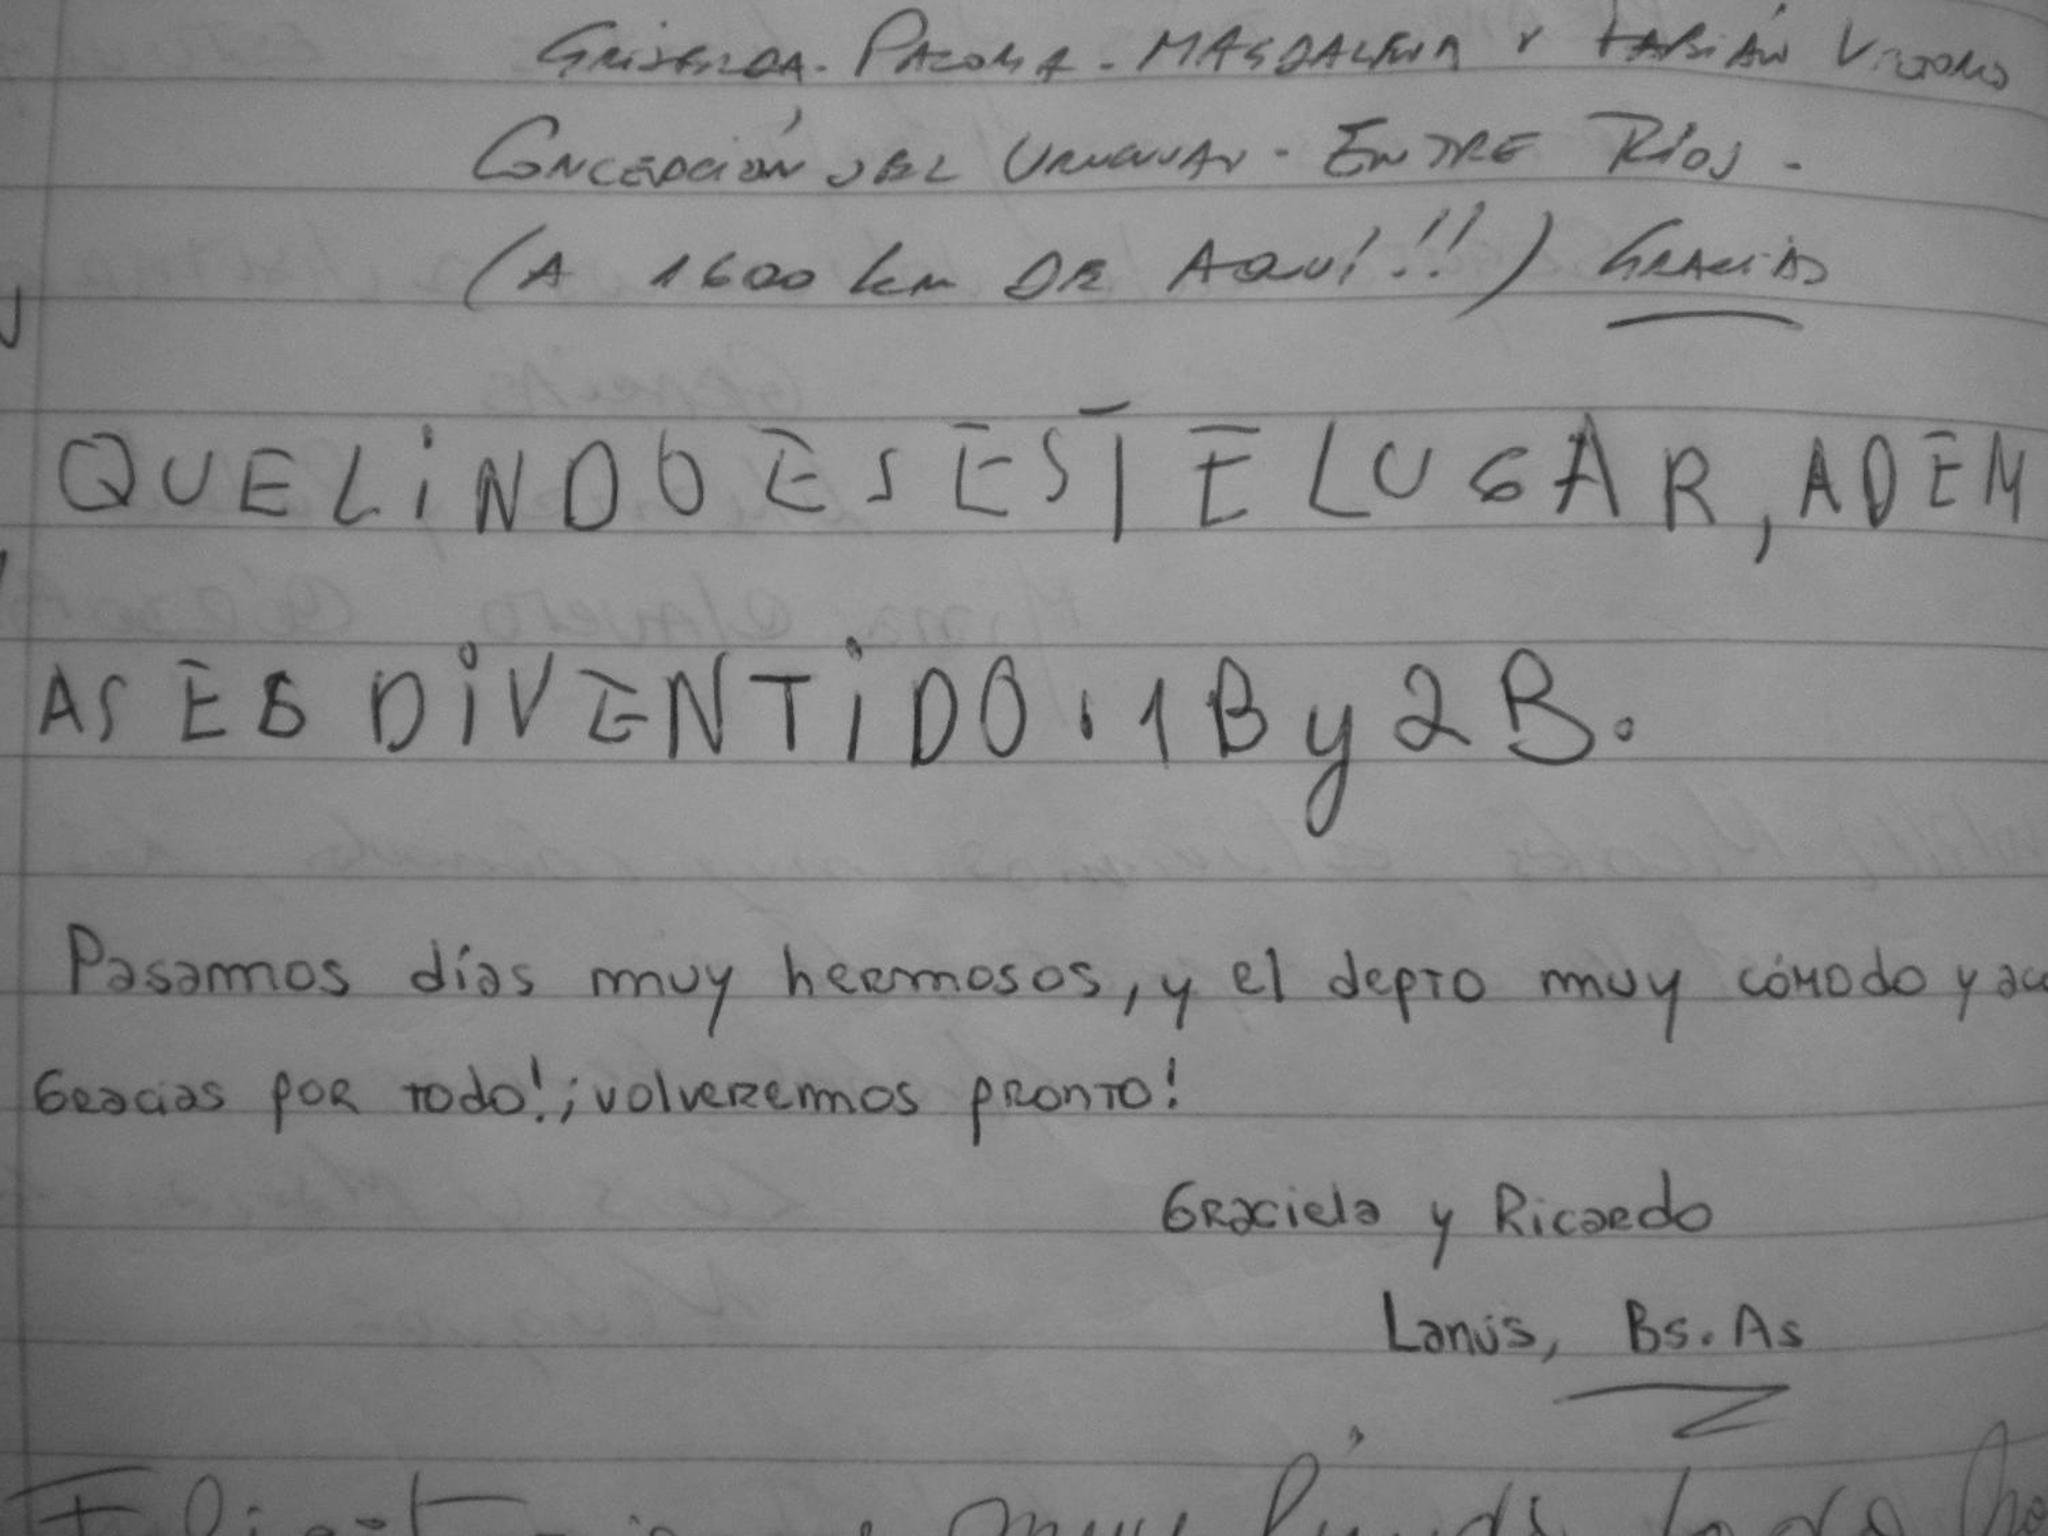 GRISELDA - PALOMA - MAGDALENA Y FABIÁN
CONCEPCIÓN DEL URUGUAY - ENTRE RÍOS -
(A 1600 km DE AQUÍ!!!) GRACIAS
QUE LINDO ES ESTE LUGAR, ADEM
AS ES DIVENTIDO: 1B y 2B.
Pasamos días muy hermosos, y el depto muy cómodo y
Gracias por todo! ¡volveremos pronto!
Graciela y Ricardo
Lanús, Bs. As
muy